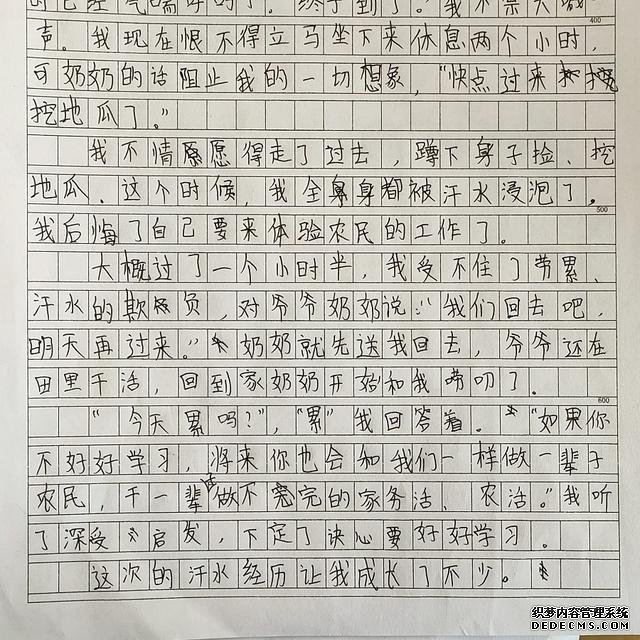 已经气喘吁吁了。"终于到了!"我不禁大喊一
400
声。我现在恨不得立马坐下来休息两个小时,
可奶奶的话阻止我的一切想象,"快点过来挖
挖地瓜了。"
我不情愿得走了过去,蹲下身子捡、挖
地瓜、这个时候,我全身都被汗水浸泡了,
500
我后悔了自己要来体验农民的工作了。
大概过了一个小时半,我受不住了劳累、
汗水的欺负,对爷爷奶奶说:"我们回去吧,
明天再过来。"奶奶就先送我回去,爷爷还在
田里干活,回到家奶奶开始和我唠叨了。
600
"今天累吗?","累"我回答着。"如果你
不好好学习,将来你也会和我们一样做一辈子
农民,干一辈子做不完的家务活、农活。"我听
了深受启发,下定了决心要好好学习。
这次的汗水经历让我成长了不少。
织梦内容管理系统
DEDECMS.COM